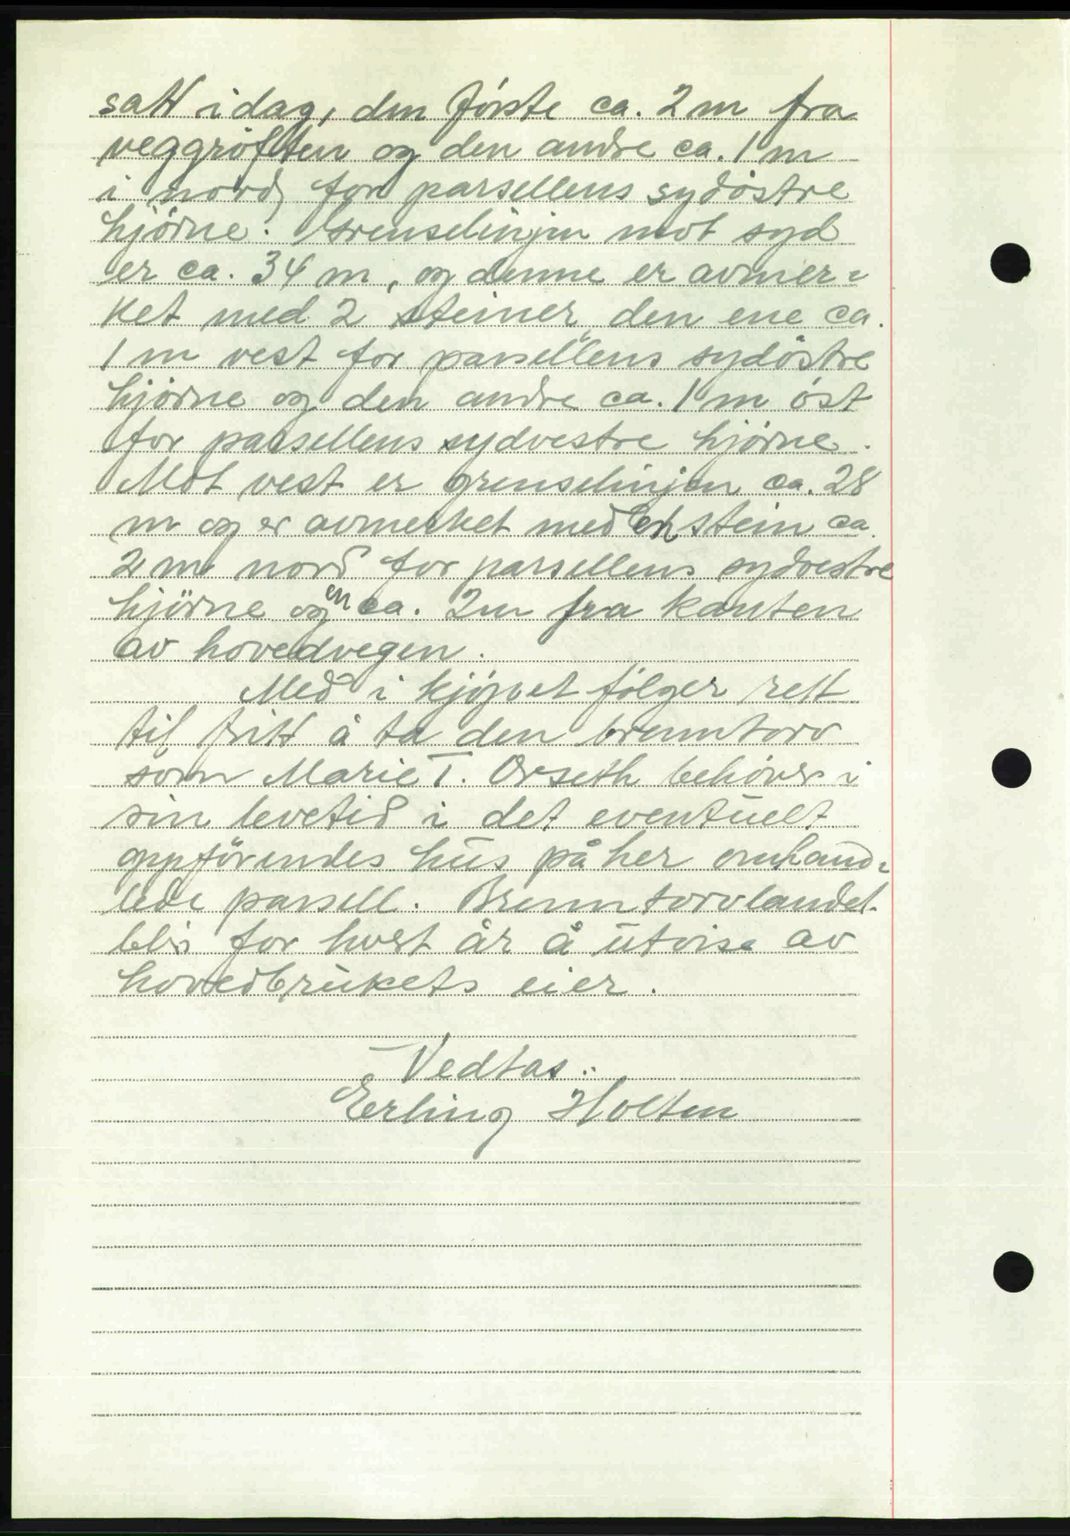 satt idag, den første ca. 2 m fra
veggrøften og den andre ca. 1 m
i nord for parsellens sydøstre
hjørne. Grenselinjen mot syd
er ca. 34 m, og denne er avmer=
ket med 2 steiner, den ene ca.
1 m vest for parsellens sydøstre
hjørne og den andre ca. 1 m øst
for parsellens sydvestre hjørne.
Mot vest er grenselinjen ca. 28
m og er avmerket med en stein ca
2 m nord for parsellens sydvestre
hjørne og en ca. 2 m fra kanten
av hovedvegen.
Med i kjøpet følger rett
til fritt å ta den brenntorv
som Marie T. Orseth behøver i
sin levetid i det eventuelt
oppførendes hus på her omhand=
lede parsell. Brenntorvlandet
blir for hvert år å utvise av
hovedbrukets eier.
Vedtas:
Erling Holten